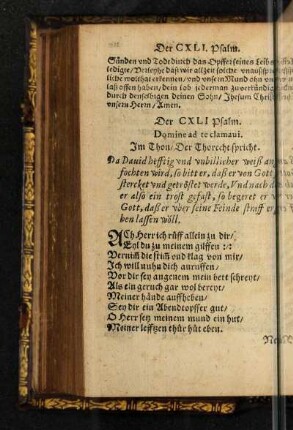 Der CXLI. Psalm.
Sünden vnd Tode durch das Opffer seines Leibes
ledige, Verleyhe daß wir allzeit solche
liche wolthat erkennen, vnd vnsern Mund
lassoffen haben, dein lob jederman zuverkündigen
durch denselbigen deinen Sohn, Jhesum Christum
vnsern Herrn, Amen.
Der CXLI Psalm.
Domine ad te clamaui.
Im Thon, Der Thorecht spricht.
Da Dauid hefftig vnd vnbillicher weiß
fochten wird, so bitt er, daß er von Gott
stercket vnd getröstet werde, Vnd nach
er also ein trost gefast, so begeret er
Gott, daß er vber seine Feinde straff
ben lassen wöll.
ACh Herr ich rüff allein zu dir,
Eyl du zu meinem gilffen :/:
Vernim̃ die stim̃ vnd klag von mir,
Ich will nuhn dich anruffen,
Vor dir sey angenem mein bett schreyt,
Als ein geruch gar wol bereyt,
Meiner hände auffheben,
Sey dir ein Abendtopffer gut,
O Herr setz meinem mund ein hut,
Meiner lefftzen thür hüt eben.